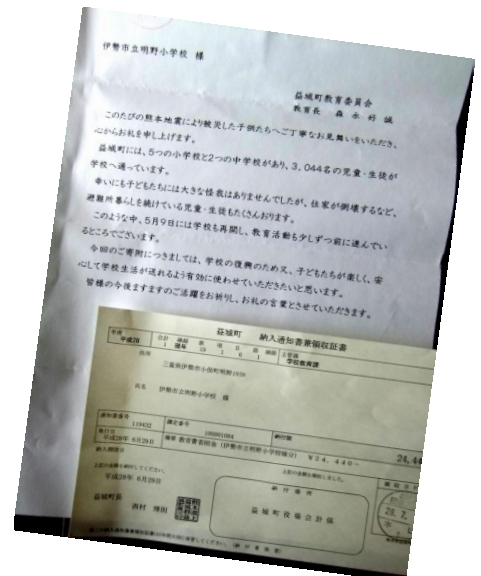 伊勢市立明野小学校 様
益城町教育委員会
教育長 森永好誠
このたびの熊本地震により被災した子供たちへご丁寧なお見舞いをいただき、
心からお礼を申し上げます。
益城町には、5つの小学校と2つの中学校があり、3,044名の児童・生徒が
学校へ通っています。
幸いにも子どもたちには大きな怪我はありませんでしたが、住家が倒壊するなど、
避難所暮らしを続けている児童・生徒もたくさんおります。
このような中、5月9日には学校も再開し、教育活動も少しずつ前に進んでい
るところでございます。
今回のご寄附につきましては、学校の復興のため又、子どもたちが楽しく、安
心して学校生活が送れるよう有効に使わせていただきたいと思います。
皆様の今後ますますのご活躍をお祈りし、お礼の言葉とさせていただきます。
益城町 納入通知書兼領収証書
年度
平成28
会計 款 項 目 節
主管課
学校教育課
住所
三重県伊勢市小俣町明野1939
氏名
伊勢市立明野小学校 様
通知書番号
119432
調定番号
納付額
発行日
平成28年 6月29日
摘要 教育費寄附金(伊勢市立明野小学校様分) ¥24,440-
24,44
納入期限日
上記の金額を納付してください。
上記の金額を領収しました。
平成28年 6月29日
益城町長
西村 博則
納付場所
益城町役場会計係
領収日
28.7.